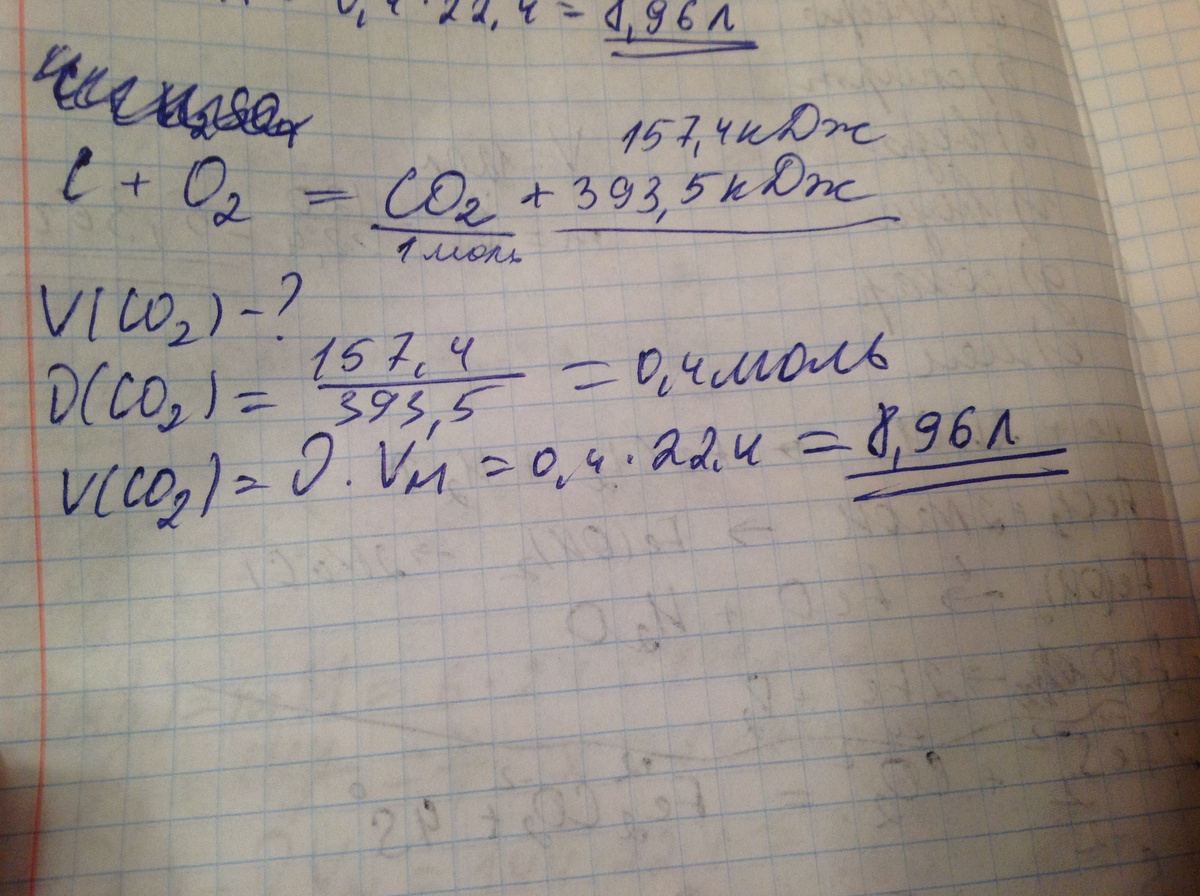 0,4·22,4 = 8,96 л
157,4 кДж
C + O₂ = CO₂ + 393,5 кДж
1 моль
V(CO₂) - ?
D(CO₂) = 157,4 / 393,5 = 0,4 моль
V(CO₂) = D · Vм = 0,4 · 22,4 = 8,96 л